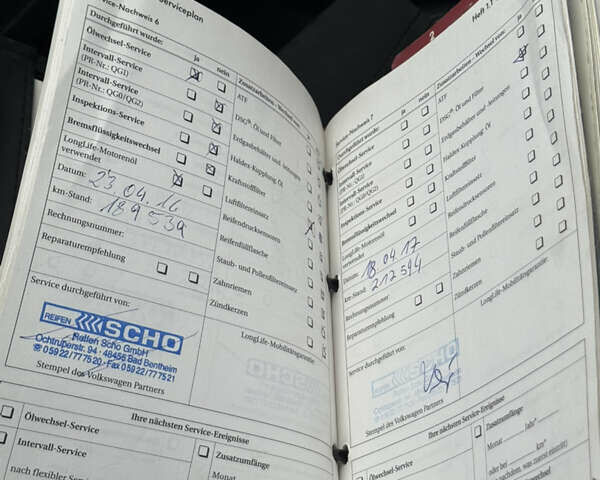 Serviceplan
Service-Nachweis 6
Durchgeführt wurde:
ja
nein
Ölwechsel-Service
Intervall-Service
(PR-Nr.: QG1)
Intervall-Service
(PR-Nr.: QG0/QG2)
Inspektions-Service
Bremsflüssigkeitswechsel
LongLife-Motorenöl
verwendet
Datum: 23.04.16
km-Stand: 189 539
Rechnungsnummer:
Reparaturempfehlung
Service durchgeführt von:
REIFEN SCHO
Reifen Scho GmbH
Ochtruperstr. 94 · 48455 Bad Bentheim
05922/777520 · Fax 05922/777521
Stempel des Volkswagen Partners
Zusatzarbeiten - Wechsel von:
ATF
DSG® Öl und Filter
Erdgasbehälter und -leitungen
Haldex-Kupplung Öl
Kraftstofffilter
Luftfiltereinsatz
Reifendrucksensoren
Reifenfüllflasche
Staub- und Pollenfiltereinsatz
Zahnriemen
Zündkerzen
LongLife-Mobilitätsgarantie:
Ihre nächsten Service-Ereignisse
Ölwechsel-Service
Intervall-Service
nach flexibler
Zusatzumfänge
Monat
2
Heft 1.1
Service-Nachweis 7
Durchgeführt wurde:
ja
nein
Ölwechsel-Service
Intervall-Service
(PR-Nr.: QG1)
Intervall-Service
(PR-Nr.: QG0/QG2)
Inspektions-Service
Bremsflüssigkeitswechsel
LongLife-Motorenöl
verwendet
Datum: 18.04.17
km-Stand: 212 594
Rechnungsnummer:
Reparaturempfehlung
Service durchgeführt von:
Stempel des Volkswagen Partners
Zusatzarbeiten - Wechsel von:
ja
ATF
DSG® Öl und Filter
Erdgasbehälter und -leitungen
Haldex-Kupplung Öl
Kraftstofffilter
Luftfiltereinsatz
Reifendrucksensoren
Reifenfüllflasche
Staub- und Pollenfiltereinsatz
Zahnriemen
Zündkerzen
LongLife-Mobilitätsgarantie:
Ihre nächsten Service-Ereignisse
Ölwechsel-Service
Zusatzumfänge
Monat
Jahr*
oder bei
km*
(*nach dem, was zuerst eintritt)